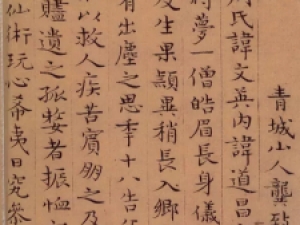 青城山人龔
周氏諱文英內諱道昌
將夢一僧皓眉長身儀
及生果穎異稍長入鄉
有出塵之思年十八告
以救人疾苦實朋之及
贐遺之孤嫠者振恤
仙術玩心希夷日究參